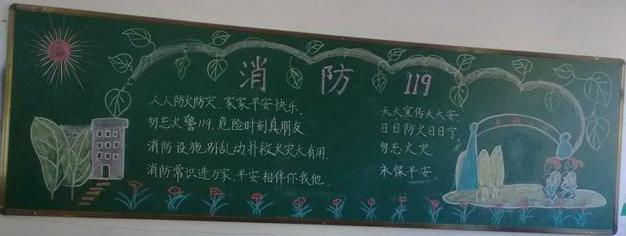 消 防 119
人人防火防灾，家家平安快乐，
勿忘火警119，危险时刻真朋友
消防设施别乱动扑救火灾大有用，
消防常识进万家，平安相伴你我他，
天天宣传天天安，
日日防火日日宁，
勿忘火灾，
永保平安，